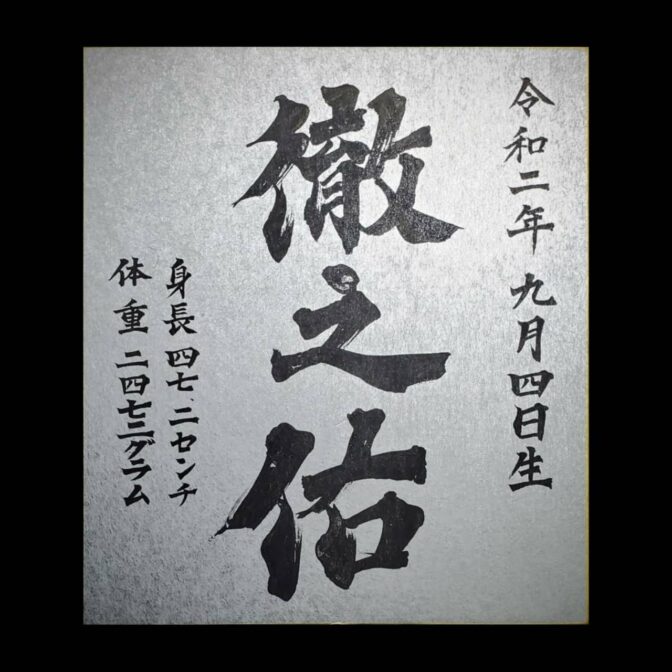 令和二年 九月四日生
徹之佑
身長 四七、二センチ
体重 二四七三グラム